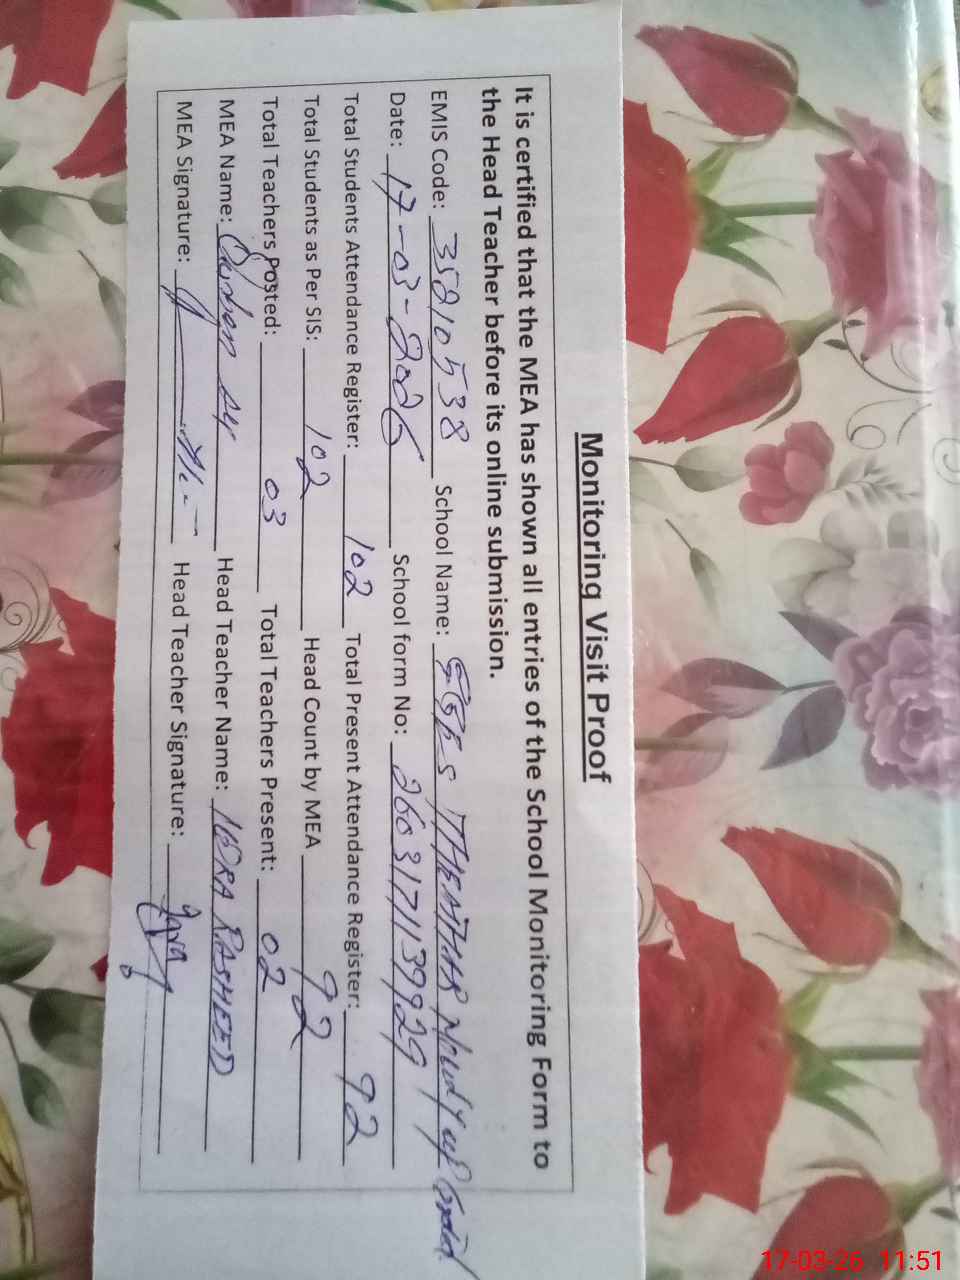 Monitoring Visit Proof
It is certified that the MEA has shown all entries of the School Monitoring Form to
the Head Teacher before its online submission.
EMIS Code: 35210538 School Name: GGPS THEATHAR Newly up Graded
Date: 17-03-2026 School form No: 2603171139929
Total Students Attendance Register: 102 Total Present Attendance Register: 92
Total Students as Per SIS: 102 Head Count by MEA 92
Total Teachers Posted: 03 Total Teachers Present: 02
MEA Name: Head Teacher Name: IQRA RASHEED
MEA Signature: Head Teacher Signature: Iqra
17-03-26 11:51